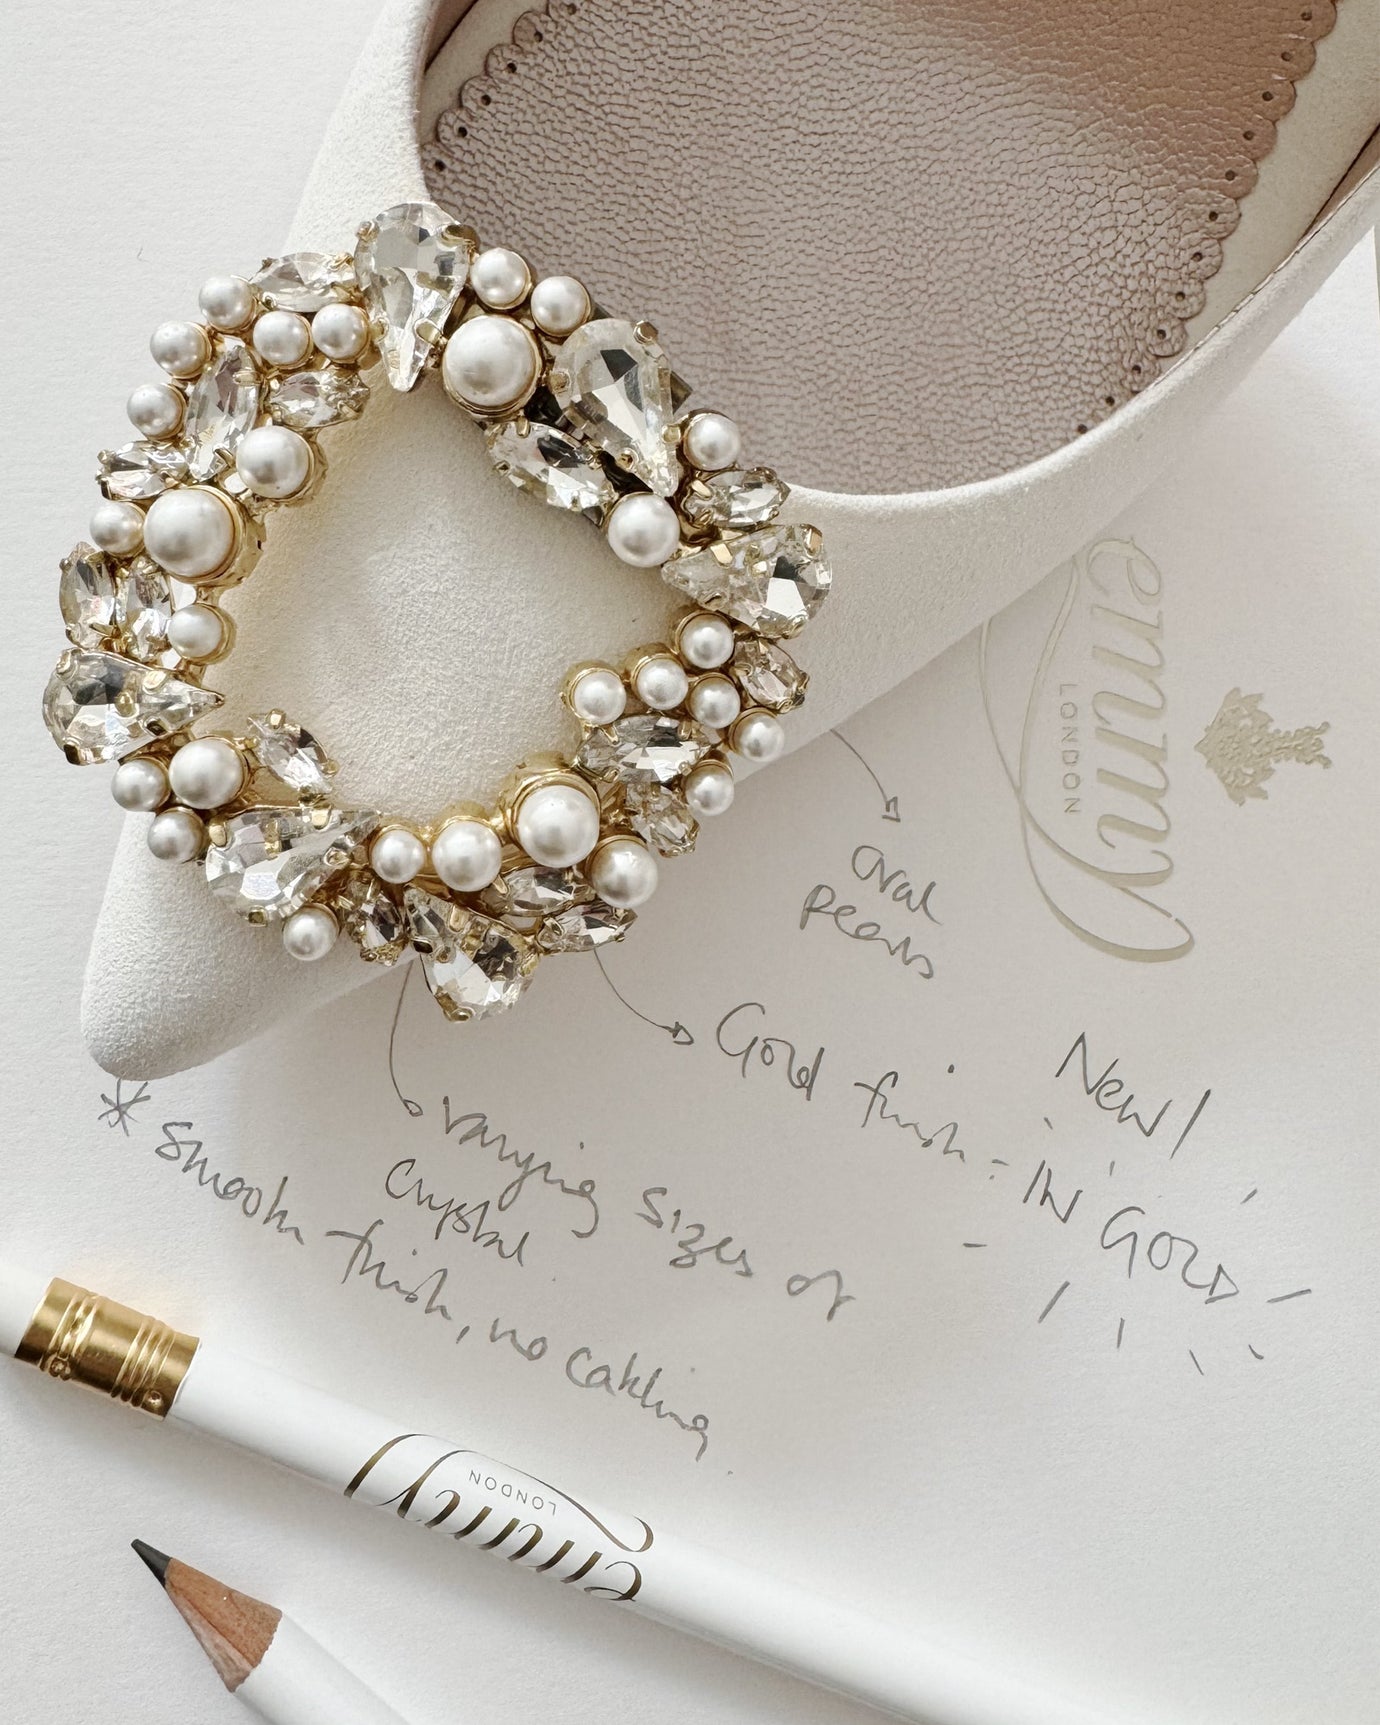 emmy
LONDON
oval
pearls
Gold finish -
New!
IN GOLD
varying sizes of
crystal
* smooth finish, no catching
emmy
LONDON